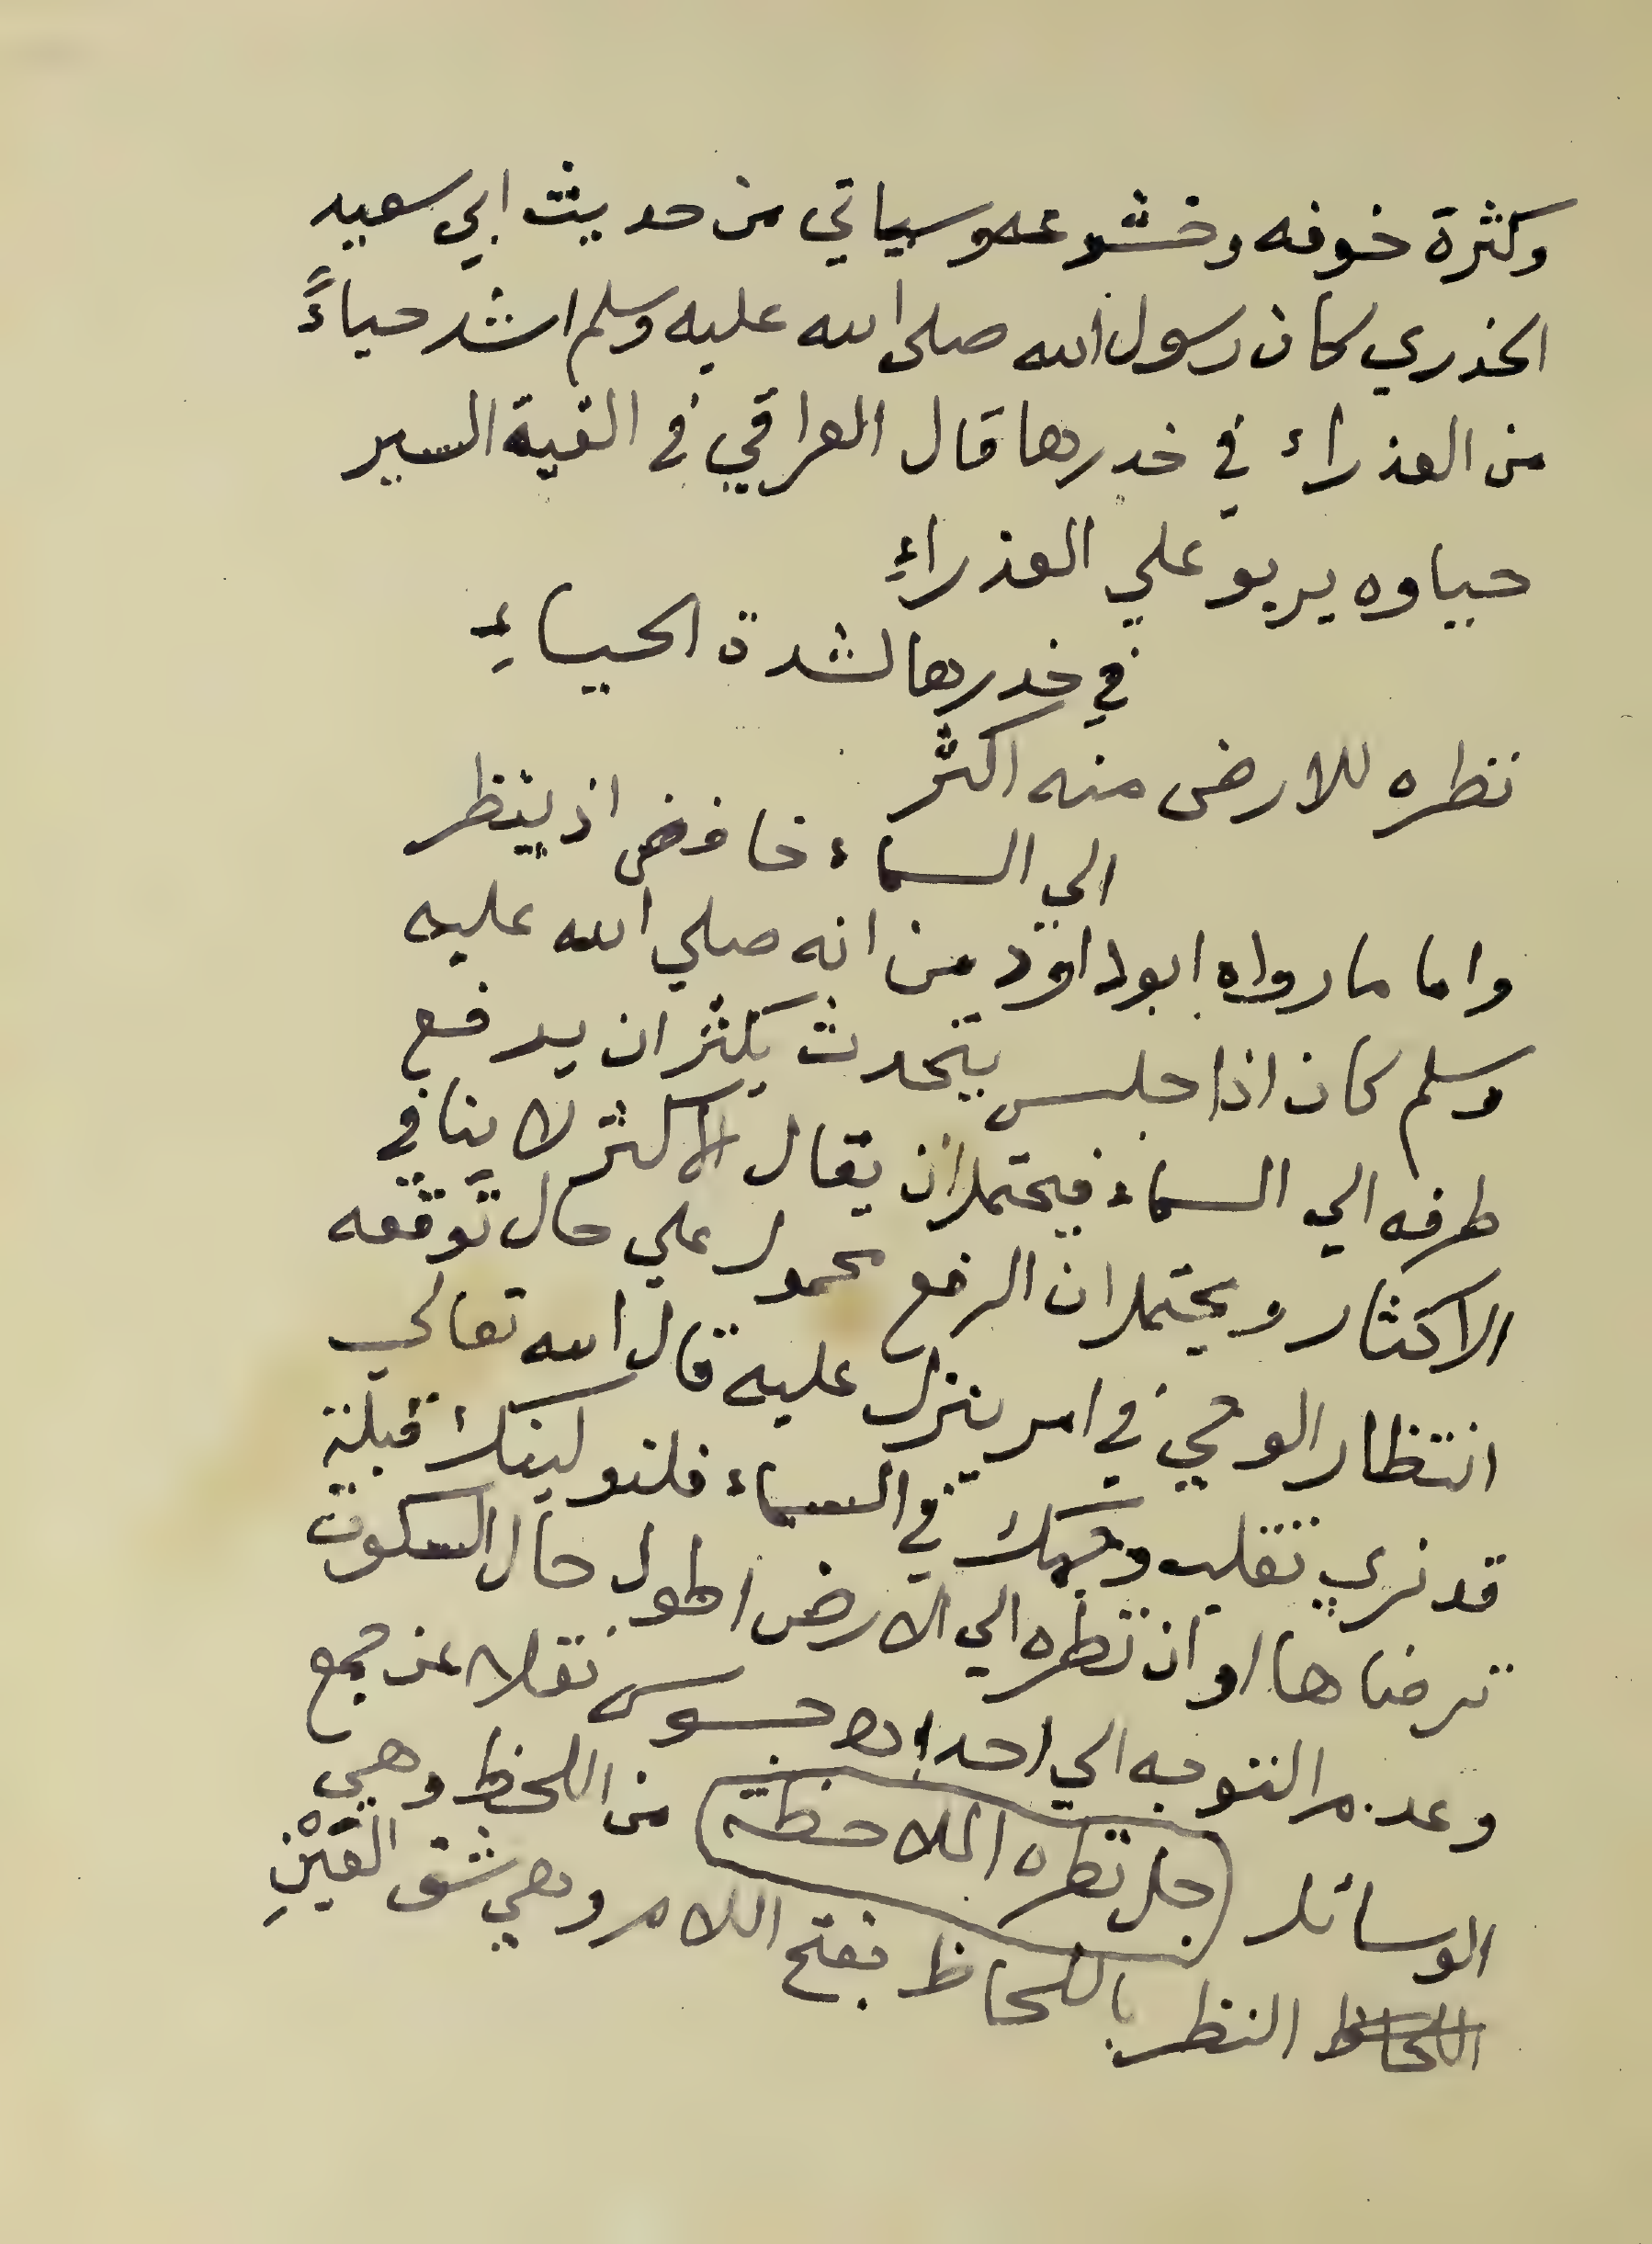 وكثرة خوفه وخشوعه وسياتي من حديث ابي سعيد
الخدري كان رسول الله صلى الله عليه وسلم اشد حياءً
من العذراء في خدرها قال العراقي في الفية السير
حياوه يربو علي العذراءِ
في خدرها لشدة الحياءِ
نظره للارض منه اكثر
الي السماء خافض اذ ينظر
واما ما رواه ابو داود من انه صلي الله عليه
وسلم كان اذا جلس يتحدث يكثر ان يرفع
طرفه الي السماء فيحتمل ان يقال الاكثر لا ينافي
الاكثار ويحتمل ان الرفع محمول علي حال توقعه
انتظار الوحي في امر ينزل عليه قال الله تعالي
قد نري تقلب وجهك في السماء فلنولينك قبلة
ترضاها او ان نظره الي الارض اطول حال السكوت
وعدم التوجه الي احد اهـ جسوس نقلا عن جمع
الوسائل (جل نظره الملاحظة) من اللحظ وهي
اللحاظ النظر باللحاظ بفتح اللام وهي شق العَيْنِ